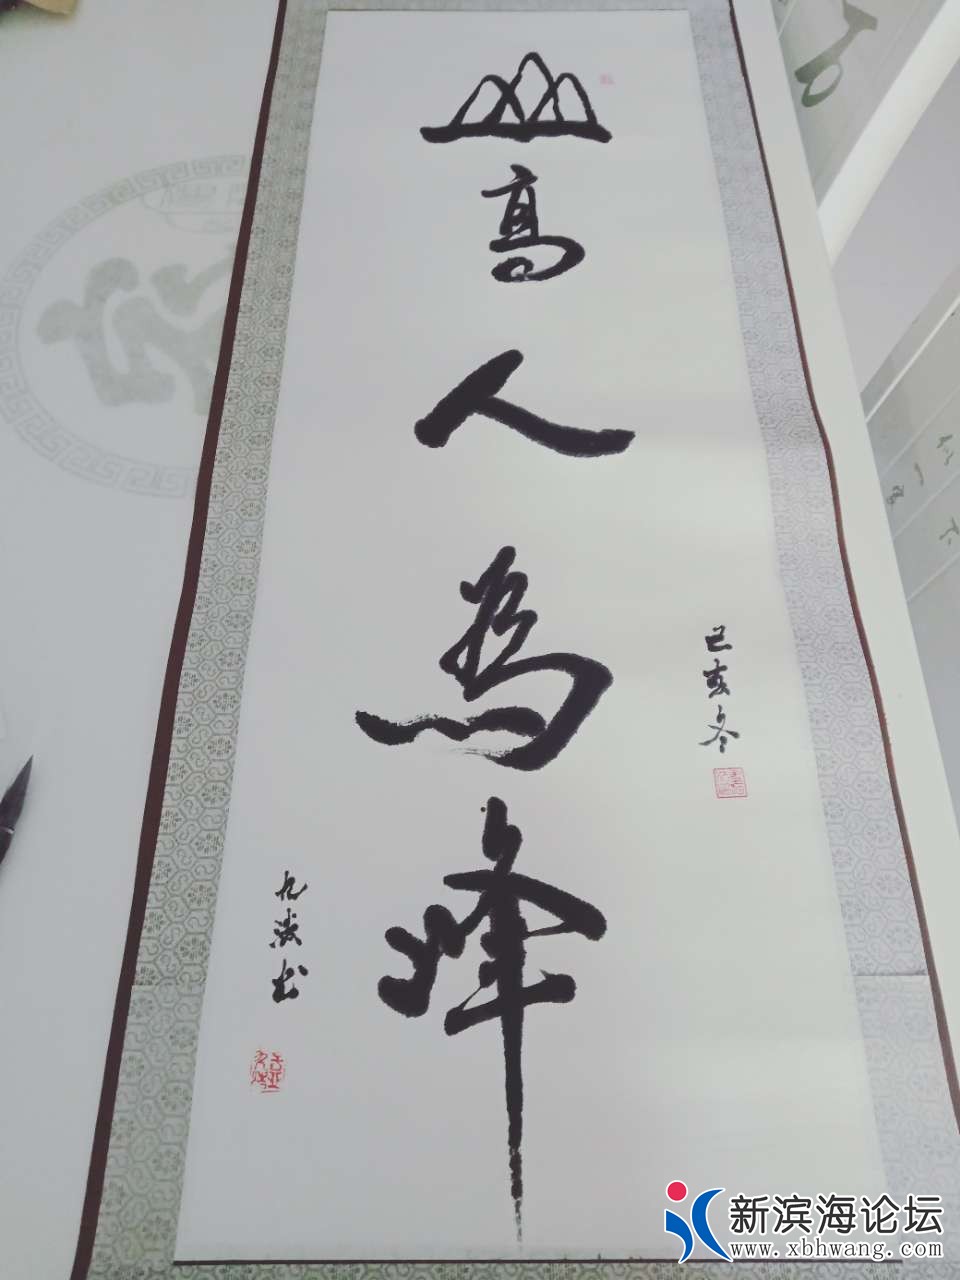 山高人為峰
己亥冬
九成书
新滨海论坛
www.xbhwang.com